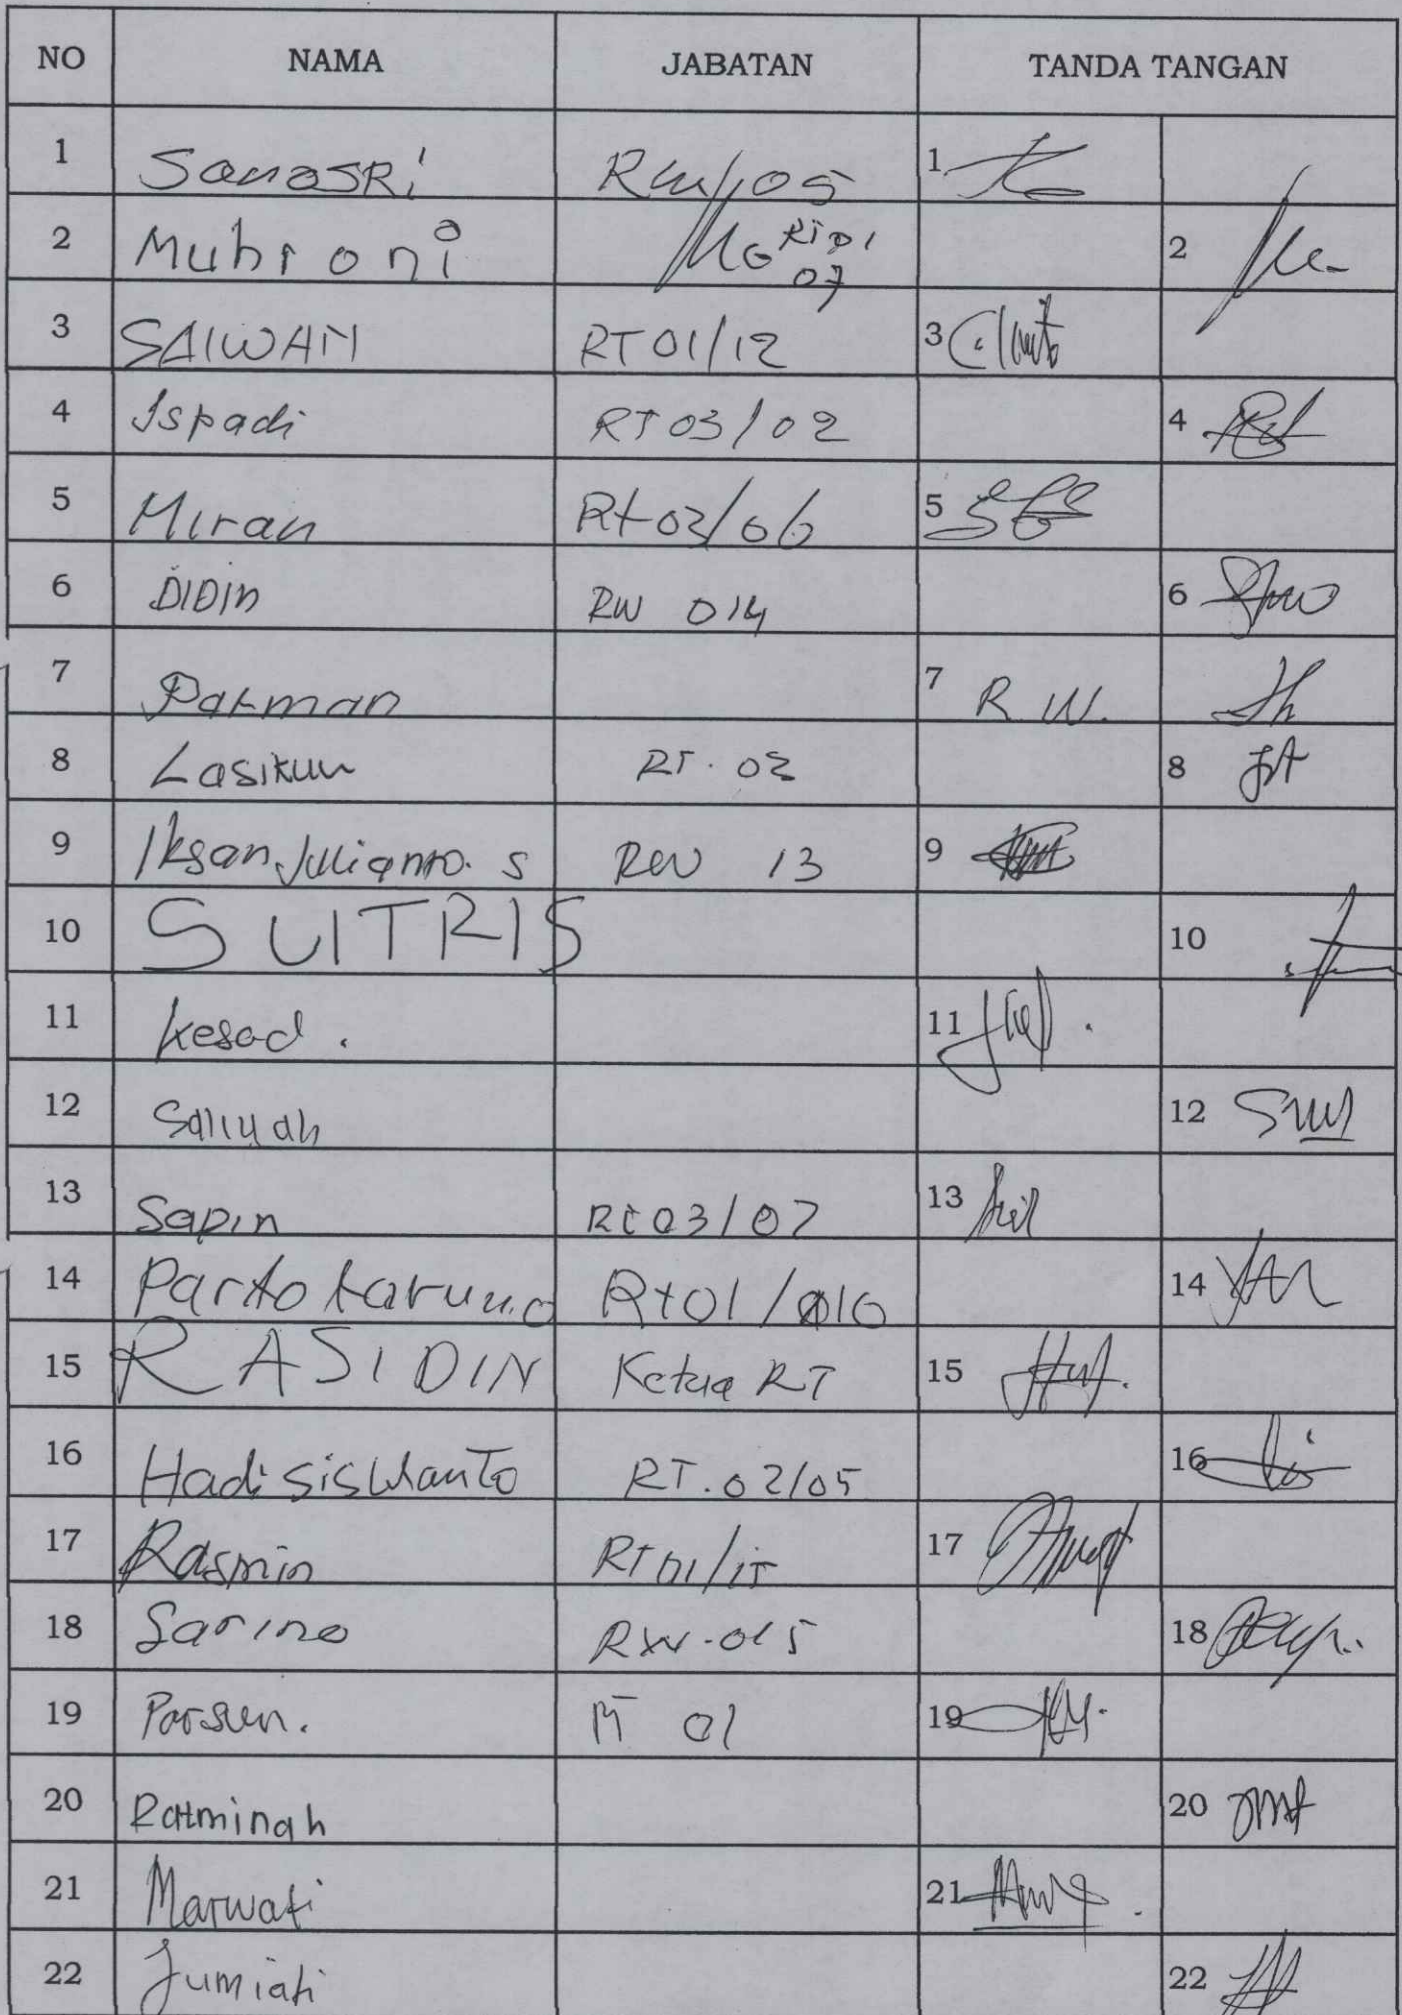 NO NAMA JABATAN TANDA TANGAN
1 Sanasri RW/05 1
2 Muhroni RT 01 07 2
3 SAIWAN RT 01/12 3
4 Ispadi RT 03/02 4
5 Miran Rt 03/06 5
6 DIDIN RW 014 6
7 Parman 7 R W.
8 Lasikun RT. 02 8
9 Iksan Julianto. S RW 13 9
10 SUTRIS 10
11 kesad. 11
12 12
13 Sapin Rt 03/07 13
14 Parto taruno Rt01/010 14
15 RASIDIN Ketua RT 15
16 Hadi sisWanto RT.02/05 16
17 Rasmin RT 01/15 17
18 Sarino RW.015 18
19 RT 01 19
20 Ratminah 20
21 Marwati 21
22 Jumiati 22